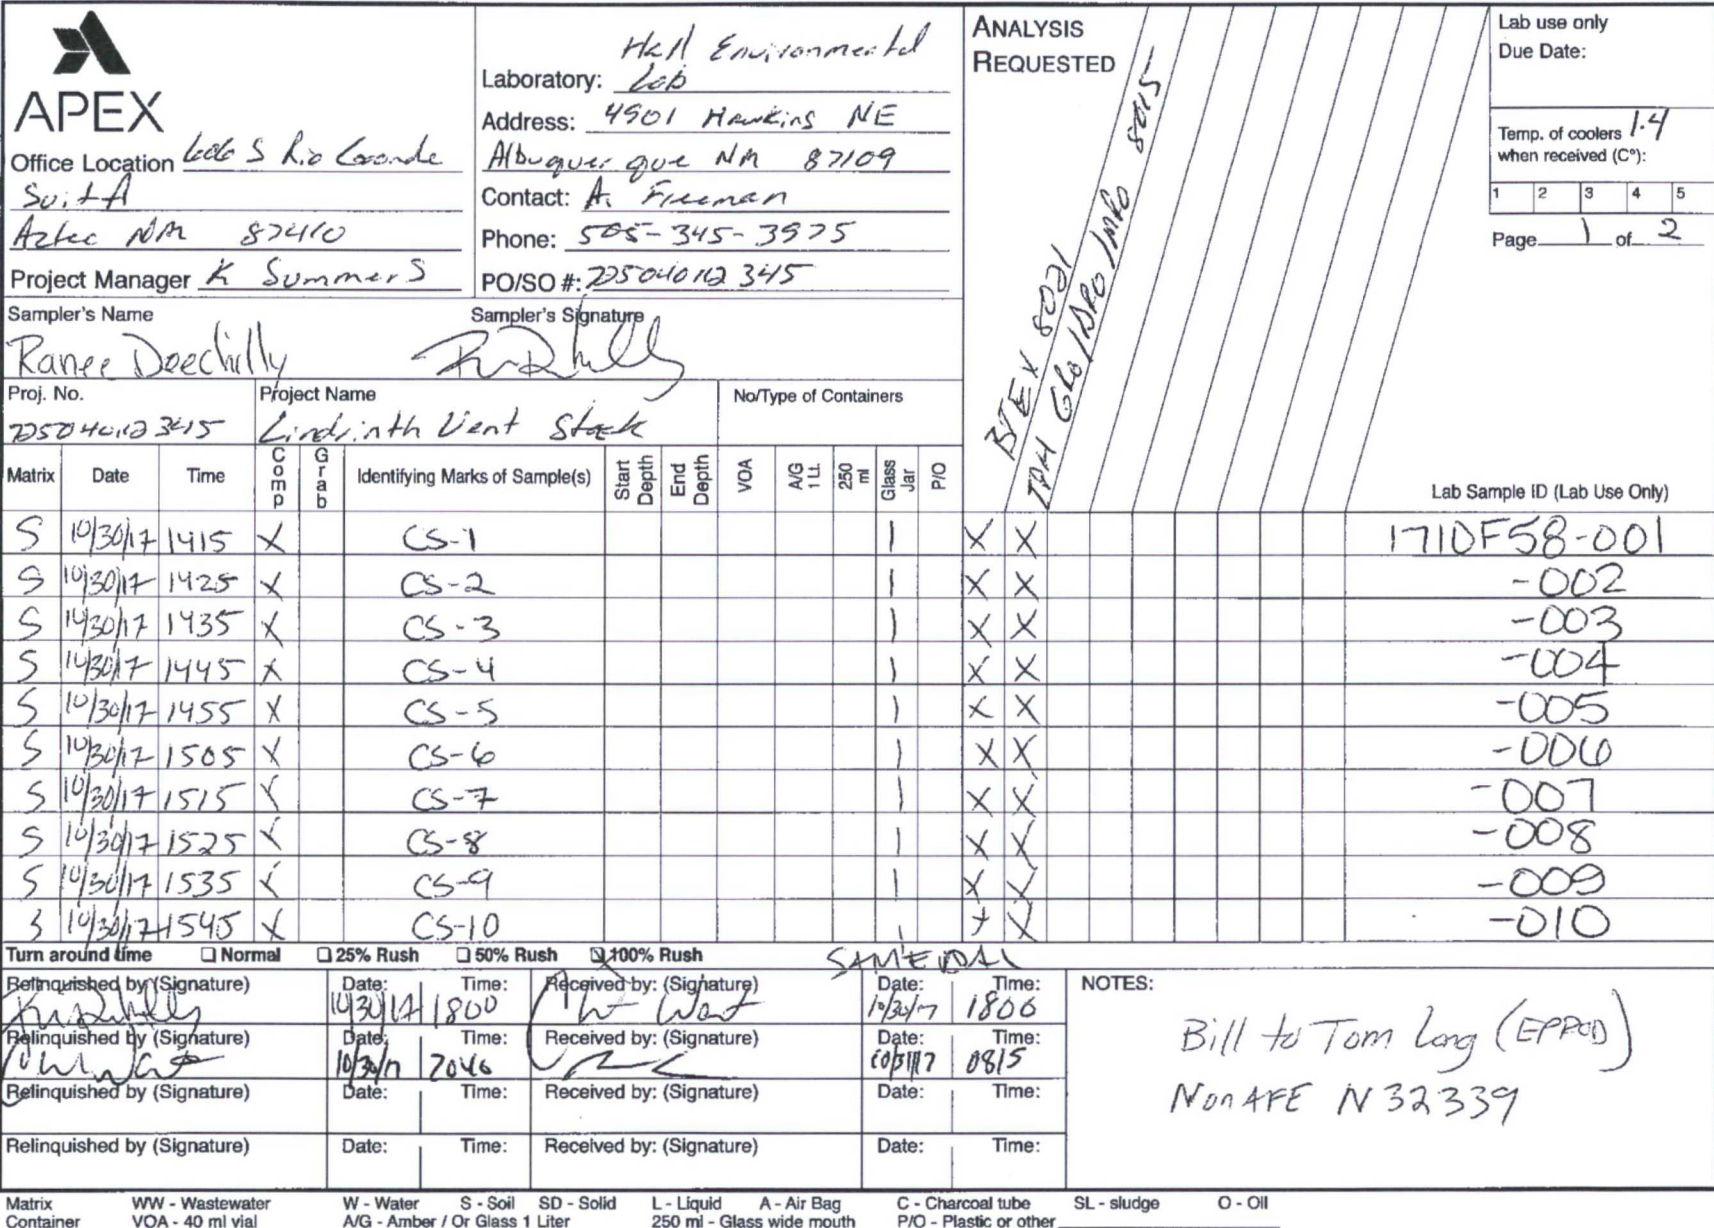 APEX
Office Location 606 S Rio Grande
Suit A
Aztec NM 87410
Project Manager K Summers
Laboratory: Hall Environmental Lab
Address: 4901 Hawkins NE
Albuquerque NM 87109
Contact: A. Freeman
Phone: 505-345-3975
PO/SO #: 725040112345
ANALYSIS REQUESTED
BTEX 8021
TPH GRO/DRO/MRO 8015
Lab use only
Due Date:
Temp. of coolers 1.4
when received (C°):
1 2 3 4 5
Page 1 of 2
Sampler's Name
Ranee Deechilly
Sampler's Signature
Proj. No.
725040112345
Project Name
Lindrinth Vent Stack
No/Type of Containers
Matrix Date Time Comp Grab Identifying Marks of Sample(s) Start Depth End Depth VOA A/G 1 Lt. 250 ml Glass Jar P/O Lab Sample ID (Lab Use Only)
S 10/30/17 1415 X CS-1 1 X X 1710F58-001
S 10/30/17 1425 X CS-2 1 X X -002
S 10/30/17 1435 X CS-3 1 X X -003
S 10/30/17 1445 X CS-4 1 X X -004
S 10/30/17 1455 X CS-5 1 X X -005
S 10/30/17 1505 X CS-6 1 X X -006
S 10/30/17 1515 X CS-7 1 X X -007
S 10/30/17 1525 X CS-8 1 X X -008
S 10/30/17 1535 X CS-9 1 X X -009
S 10/30/17 1545 X CS-10 1 X X -010
Turn around time Normal 25% Rush 50% Rush 100% Rush SAME DAY
Relinquished by (Signature) Date: 10/30/17 Time: 1800 Received by: (Signature) Date: 10/30/17 Time: 1800
Relinquished by (Signature) Date: 10/30/17 Time: 2046 Received by: (Signature) Date: 10/31/17 Time: 0815
Relinquished by (Signature) Date: Time: Received by: (Signature) Date: Time:
Relinquished by (Signature) Date: Time: Received by: (Signature) Date: Time:
NOTES:
Bill to Tom Long (EPROD)
Non AFE N32339
Matrix WW - Wastewater W - Water S - Soil SD - Solid L - Liquid A - Air Bag C - Charcoal tube SL - sludge O - Oil
Container VOA - 40 ml vial A/G - Amber / Or Glass 1 Liter 250 ml - Glass wide mouth P/O - Plastic or other